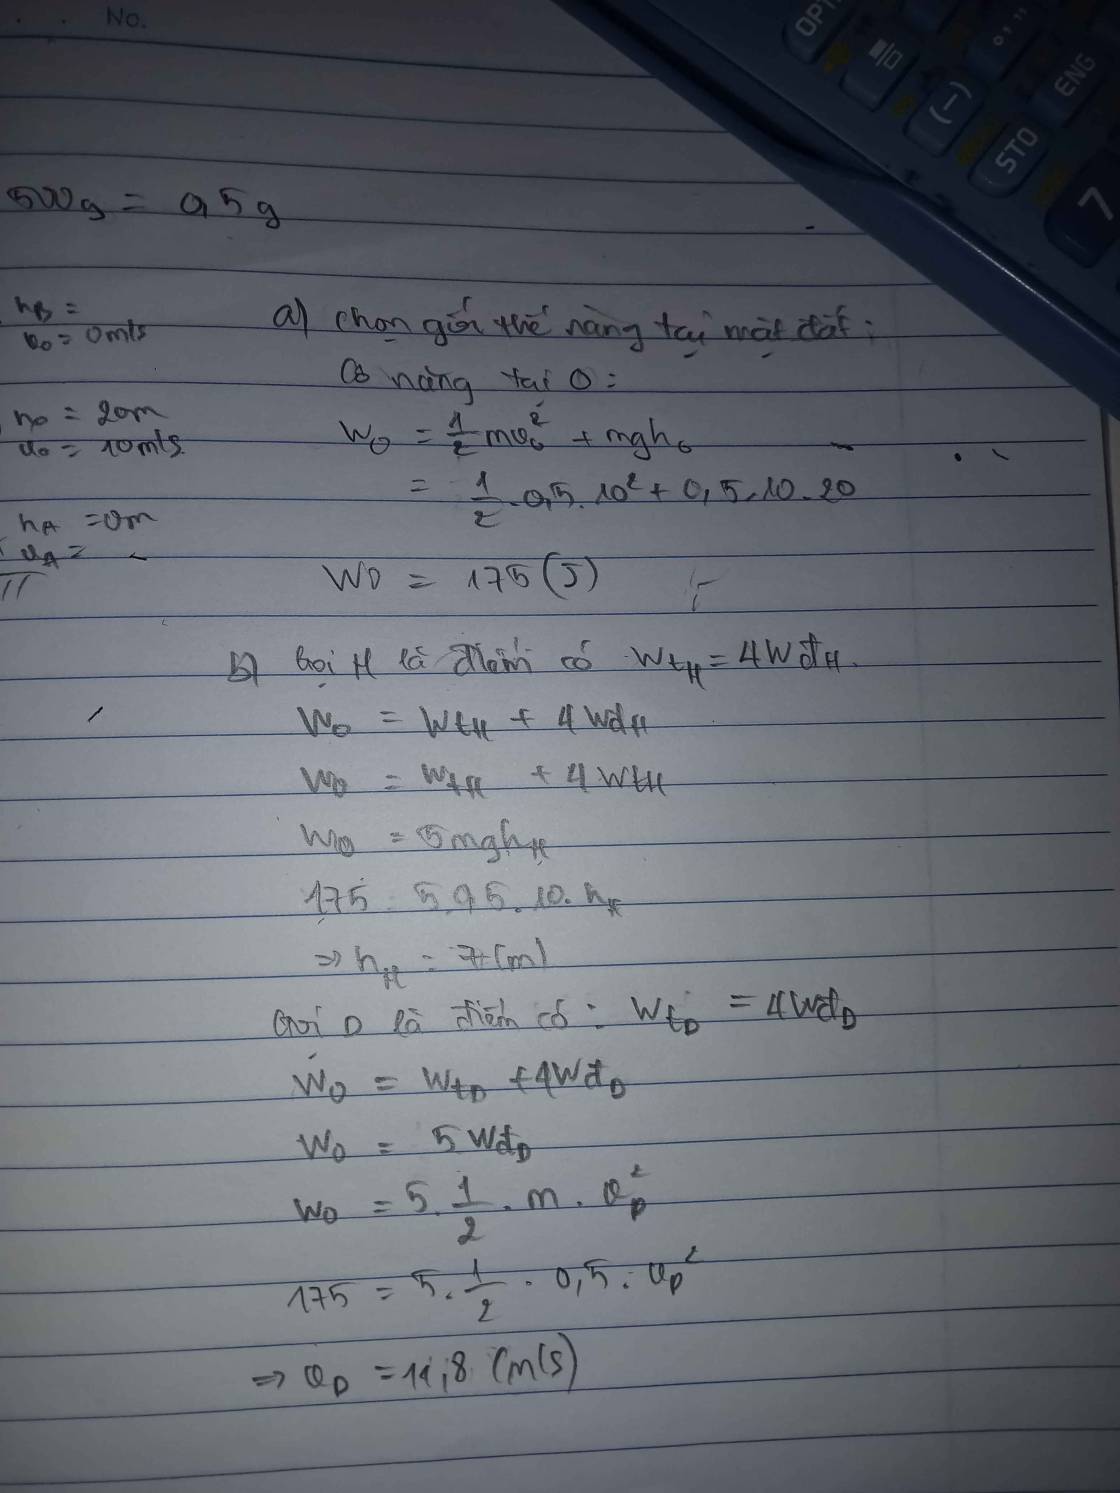 No.
OPT
(-)
ENG
STO
7
500g = 0,5g
hB =
v0 = 0m/s
a) chọn gốc thế năng tại mặt đất:
Cơ năng tại O:
h0 = 20m
v0 = 10m/s.
WO = 1/2 mv0² + mgh0
= 1/2 . 0,5 . 10² + 0,5.10.20
hA = 0m
vA =
WO = 175 (J)
b) Gọi H là điểm có WtH = 4WđH.
WO = WtH + 4WđH
WO = WtH + 4WtH
WO = 5mghH
175 = 5.0,5.10.hH
=> hH = 7(m)
Gọi D là điểm có: WtD = 4WđD
WO = WtD + 4WđD
WO = 5WđD
WO = 5.1/2 . m . vD²
175 = 5.1/2 . 0,5 . vD²
=> vD = 11,8 (m/s)